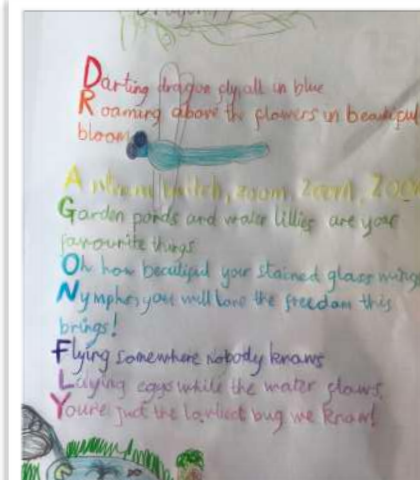 Dragonfly
Darting dragon fly, all in blue
Roaming above the flowers in beautiful
bloom
A twitch, zoom, zoom, zoo
Garden ponds and water lillies are your
favourite things
Oh how beautiful your stained glass wings
Nymphs, you will love the freedom this
brings!
Flying somewhere nobody knows
Laying eggs while the water flows,
You're just the bug we know!